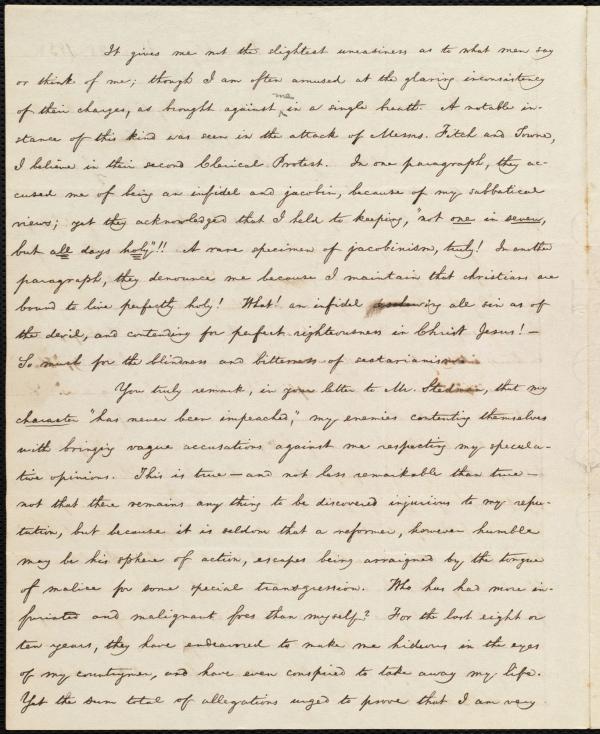 It gives me not the slightest uneasiness as to what men say
or think of me; though I am often amused at the glaring inconsistency
of their charges, as brought against me in a single breath. A notable in-
stance of this kind was seen in the attack of Messrs. Fitch and Towne,
I believe in their second Clerical Protest. In one paragraph, they ac-
cused me of being an infidel and jacobin, because of my sabbatical
views; yet they acknowledged that I held to keeping, "not one in seven,
but all days holy"!! A rare specimen of jacobinism, truly! In another
paragraph, they denounce me because I maintain that christians are
bound to live perfectly holy! What! an infidel all sin as of
the devil, and contending for perfect righteousness in Christ Jesus! —
So much for the blindness and bitterness of sectarianism.
You truly remark, in your letter to Mr. Stedman, that my
character "has never been impeached," my enemies contenting themselves
with bringing vague accusations against me respecting my specula-
tive opinions. This is true — and not less remarkable than true —
not that there remains any thing to be discovered injurious to my repu-
tation, but because it is seldom that a reformer, however humble
may be his sphere of action, escapes being arraigned by the tongue
of malice for some special transgression. Who has had more in-
furiated and malignant foes than myself? For the last eight or
ten years, they have endeavored to make me hideous in the eyes
of my countrymen, and have even conspired to take away my life.
Yet the sum total of allegations urged to prove that I am very